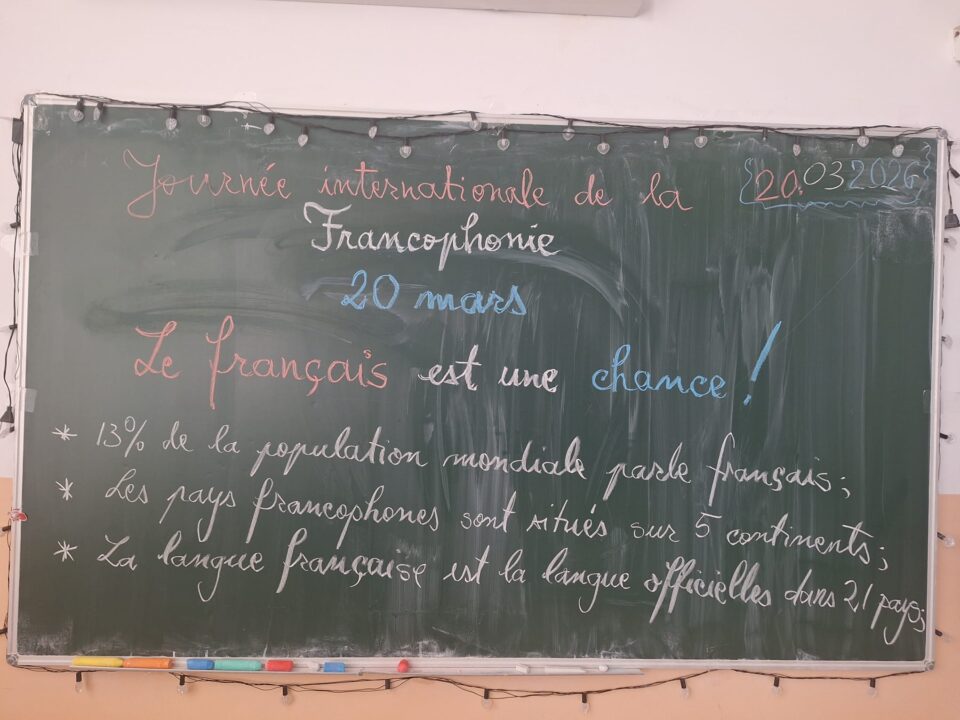 Journée internationale de la 20.03 2026
Francophonie
20 mars
Le français est une chance !
* 13% de la population mondiale parle français ;
* Les pays francophones sont situés sur 5 continents ;
* La langue française est la langue officielles dans 21 pays ;